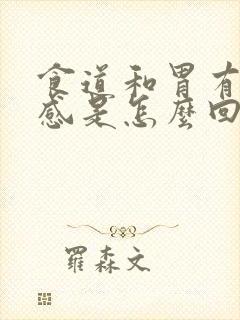 食道和胃有
感是怎麼回
羅森文